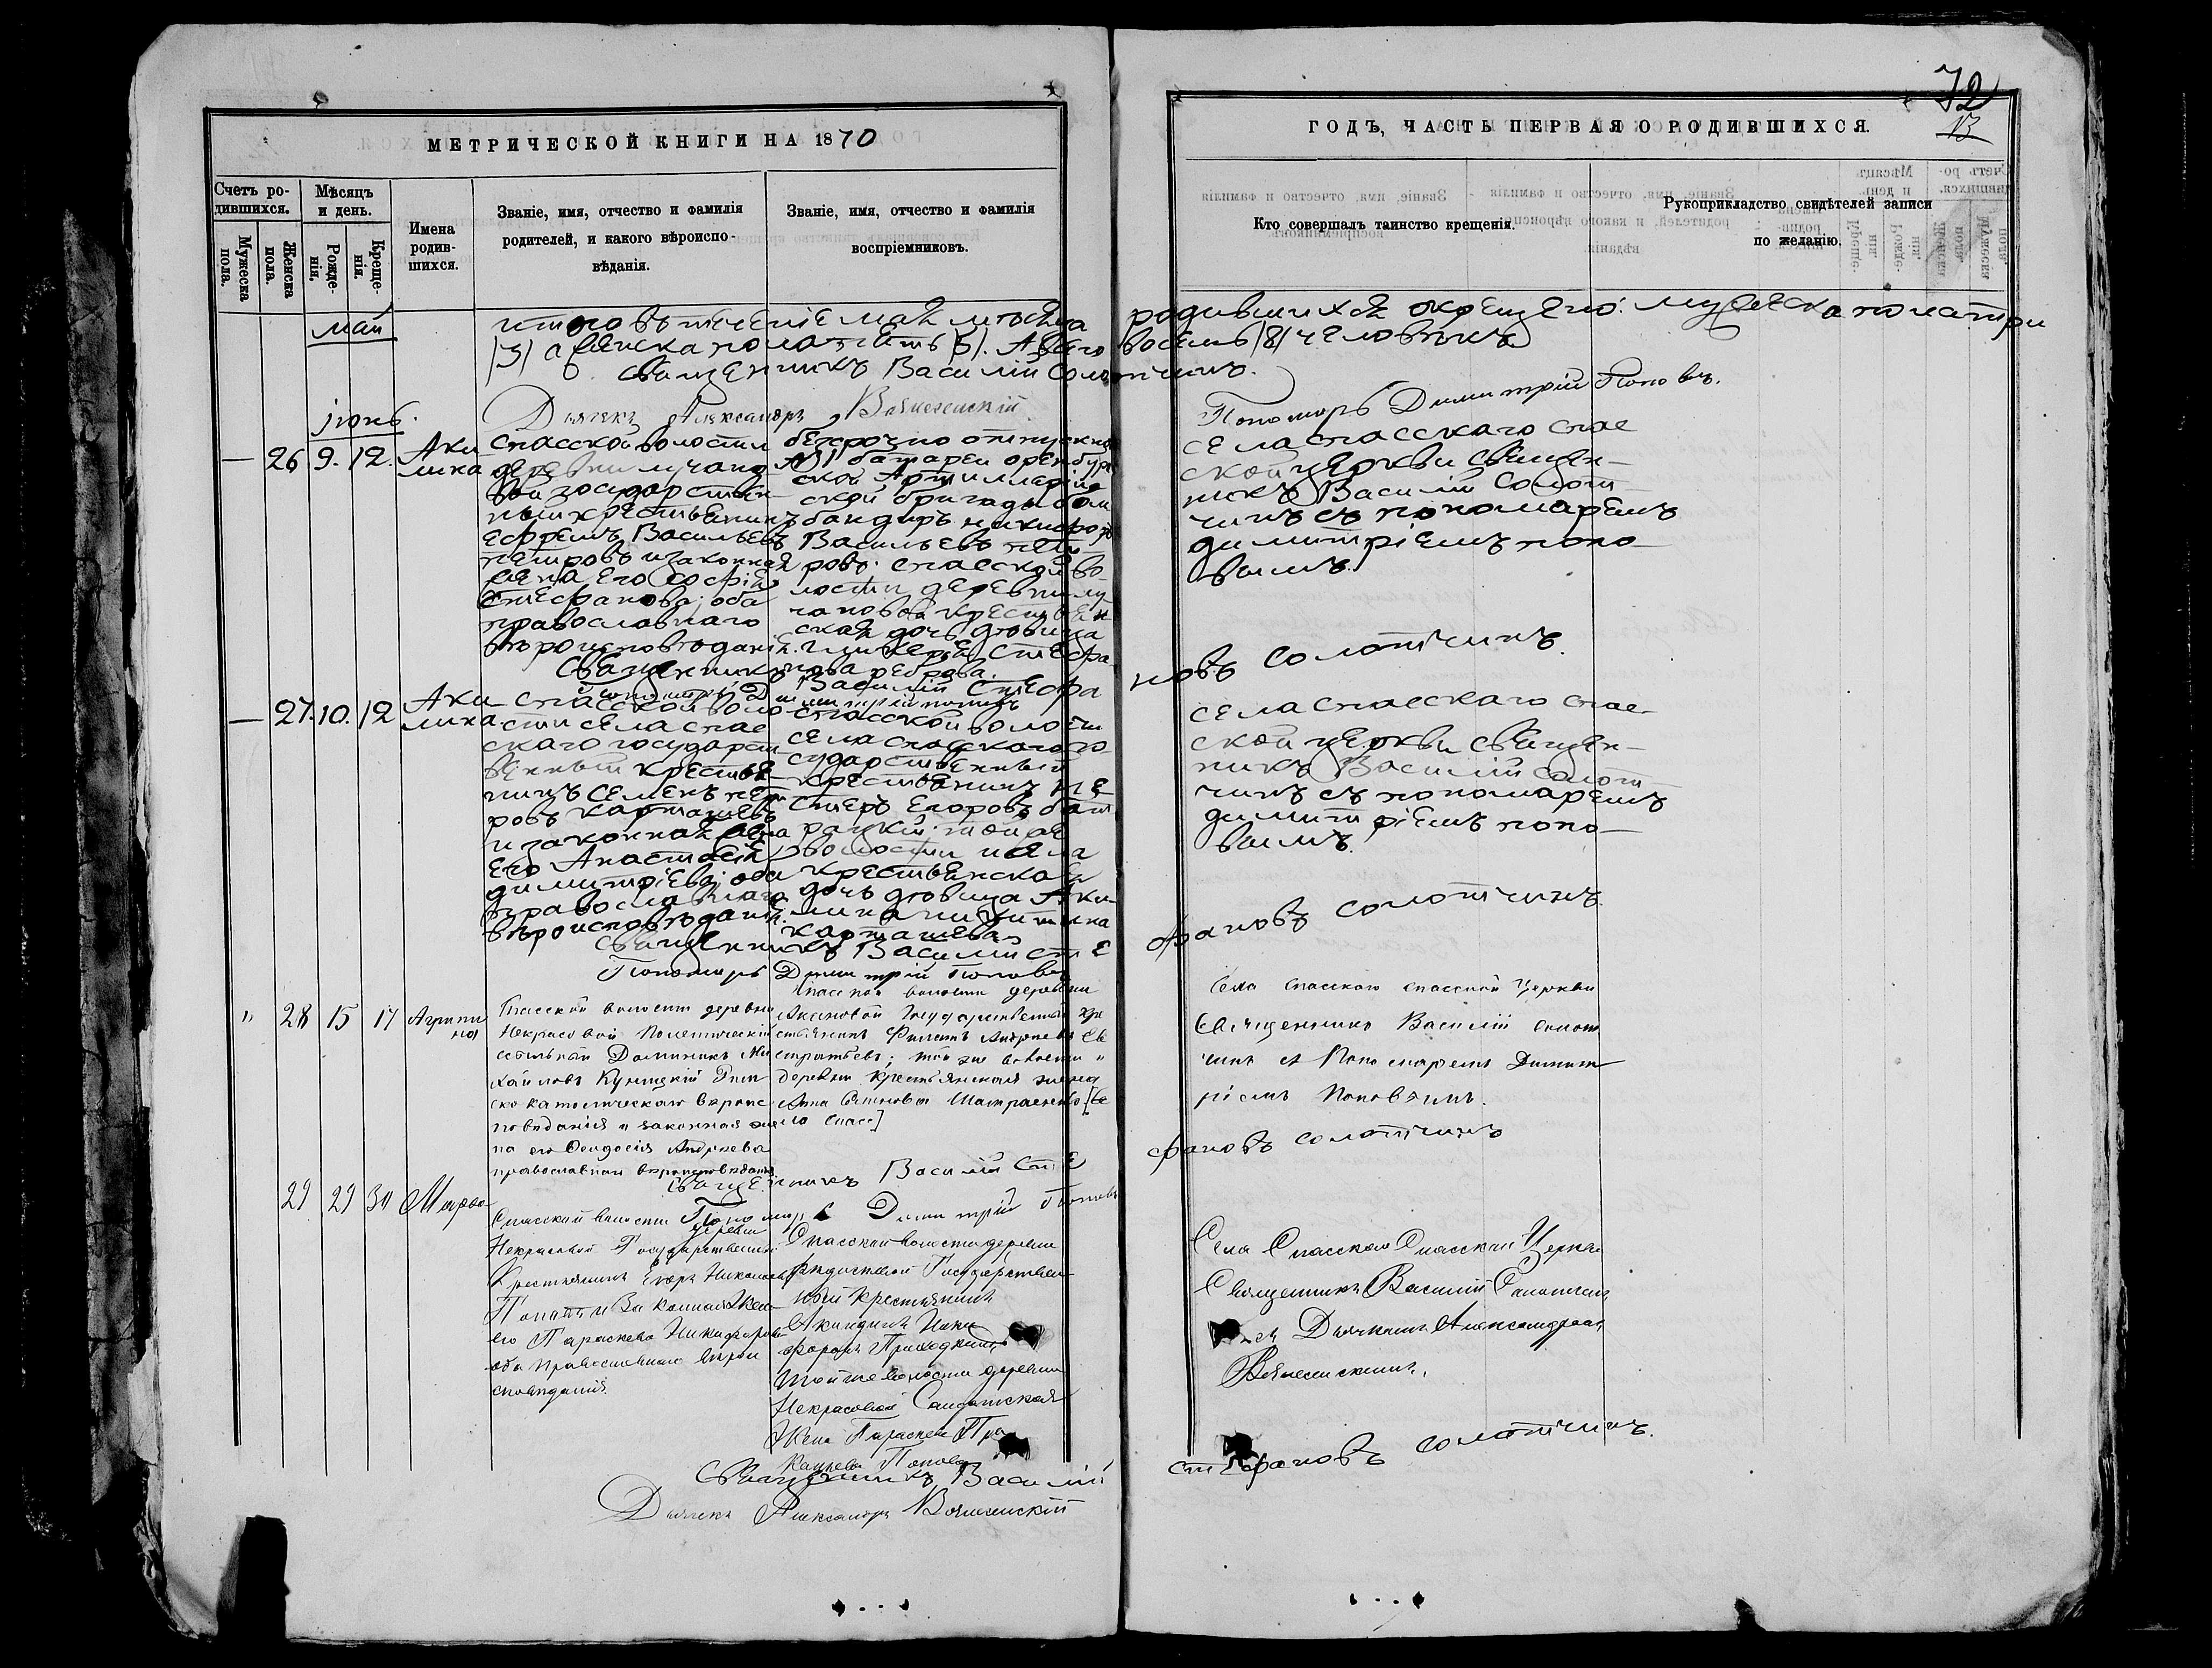 МЕТРИЧЕСКОЙ КНИГИ НА 1870
Счетъ ро-
дившихся.
Мужеска
пола.
Женска
пола.
Мѣсяцъ
и день.
Рожде-
нія.
Креще-
нія.
Имена
родив-
шихся.
Званіе, имя, отчество и фамилія
родителей, и какого вѣроиспо-
вѣданія.
Званіе, имя, отчество и фамилія
воспріемниковъ.
72
13
ГОДЪ, ЧАСТЬ ПЕРВАЯ О РОДИВШИХСЯ.
Кто совершалъ таинство крещенія.
Рукоприкладство свидѣтелей записи
по желанію.
май
итого въ теченіе мая мѣсяца родившихся окрещено: мужеска пола три
(3) а женска пола пять (5). А всего восемь (8) человѣкъ
священникъ Василій Солотчинъ.
Дьячекъ Александръ Вознесенскій
Пономарь Димитрій Поповъ.
іюнь.
— 26 9. 12.
Аки
лина
Спасской волости
деревни лучано
вой государствен
ный крестьянинъ
Ефремъ Васильевъ
петровъ и законная
жена его Софія
Стефанова; оба
православнаго
вѣроисповѣданія.
безсрочно отпускной
батареи оренбург
ской Артиллерій
ской бригады бом
бандиръ никифоръ
Васильевъ пет
ровъ. спасской во
лости деревни лу
чановой крестьян
ская дочь дѣвица
Гликерія Стефа
нова реброва.
села спасскаго спас
ской церкви священ—
никъ Василій Солот
чинъ съ пономаремъ
димитріемъ попо—
вымъ.
Священникъ Василій Стефа новъ солотчинъ.
Пономарь Димитрій поповъ
— 27. 10. 12
Аки
лина
спасской воло
сти села спас
скаго государст
венный крестья
нинъ Семенъ пет
ровъ карташевъ
и законная жена
его Анастасія
димитріева; оба
православнаго
вѣроисповѣданія.
спасской волости
села спасскаго го
сударственный
крестьянинъ не
стеръ Егоровъ
той же
волости и села
крестьянская
дочь дѣвица Аки
лина никитина
карташева
села спасскаго спас
ской церкви священ—
никъ Василій солот
чинъ съ пономаремъ
димитріемъ попо—
вымъ.
Священникъ Василій Сте фановъ солотчинъ
Пономарь Димитрій Поповъ
" 28 15 17
Агрипи
на
Спасской волости деревни
Некрасовой Политическій
ссыльный Доминикъ Ми
хайловъ Куницкій Рим
ско католическаго вѣроис
повѣданія и законная же
на его Феодосія Андреева
православнаго вѣроисповѣданія
Спасской волости деревни
Акановой Государственный кре
стьянинъ Филипъ Андреевъ Ев
стратьевъ; той же волости и
деревни крестьянская жена
Анна
ло Спасс]
Села Спасскаго спасской Церкви
Священникъ Василій солот
чинъ съ Пономаремъ Димит
ріемъ Поповымъ.
Священникъ Василій Сте фановъ солотчинъ
Пономарь Димитрій Поповъ
29 29 30 Марѳа
Спасской волости деревни
Некрасовой Государственный
Крестьянинъ Егоръ Николаевъ
Поповъ и Законная Жена
его Параскева Никифорова
оба православнаго вѣрои
сповѣданія.
Спасской волости деревни
Государствен
ный крестьянинъ
Акиндинъ Ники
форовъ Приходкинъ
той же волости деревни
Некрасовой Солдатская
Жена Параскева Про
Попова
Села Спасскаго Спасской Церкви
Священникъ Василій Солотчинъ
съ Дьячкомъ Александромъ
Вознесенскимъ.
Священникъ Василій Стефановъ солотчинъ.
Дьячекъ Александръ Вознесенскій